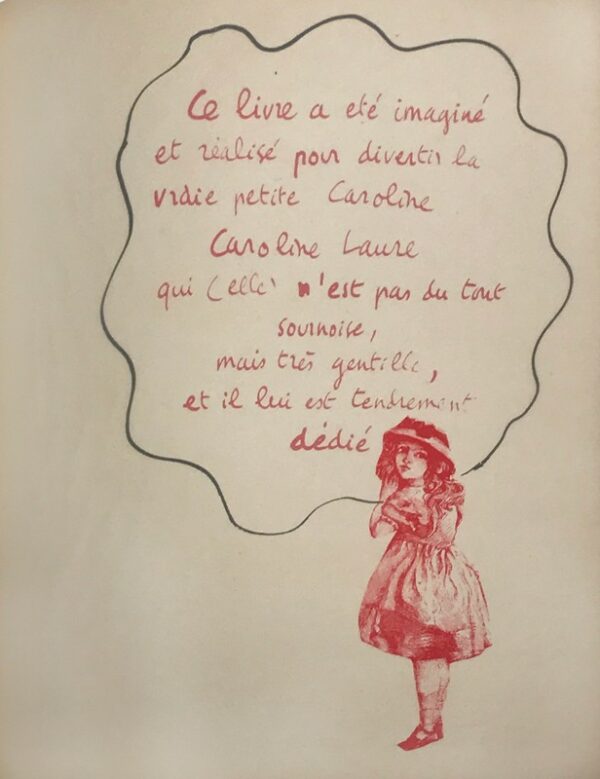 Ce livre a été imaginé
et réalisé pour divertir la
vraie petite Caroline
Caroline Laure
qui (elle) n'est pas du tout
sournoise,
mais très gentille,
et il lui est tendrement
dédié